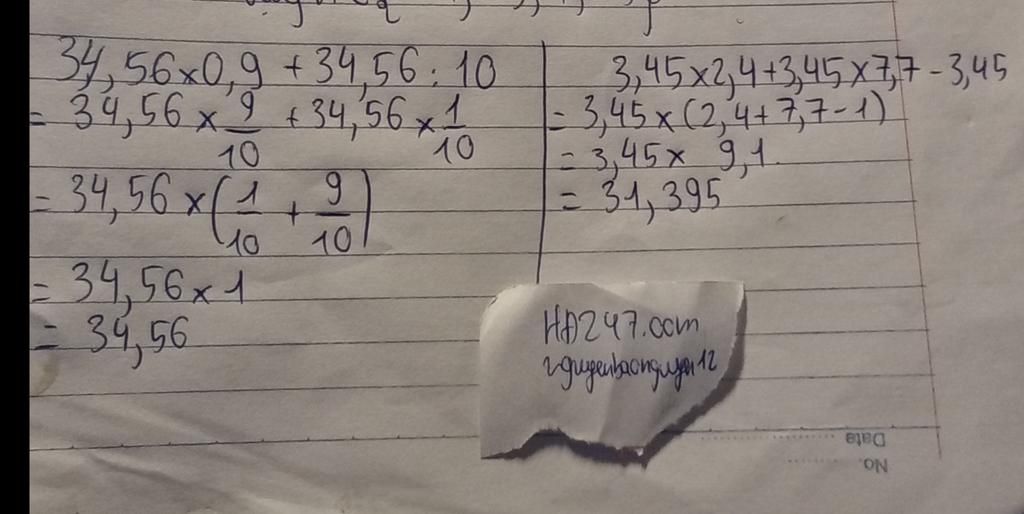 34,56×0,9 + 34,56 : 10
= 34,56 × 9/10 + 34,56 × 1/10
= 34,56 × (1/10 + 9/10)
= 34,56 × 1
= 34,56
3,45×2,4+3,45×7,7-3,45
= 3,45×(2,4+7,7-1)
= 3,45× 9,1
= 31,395
HD247.com
nguyenbaonguyen12
Data
No.